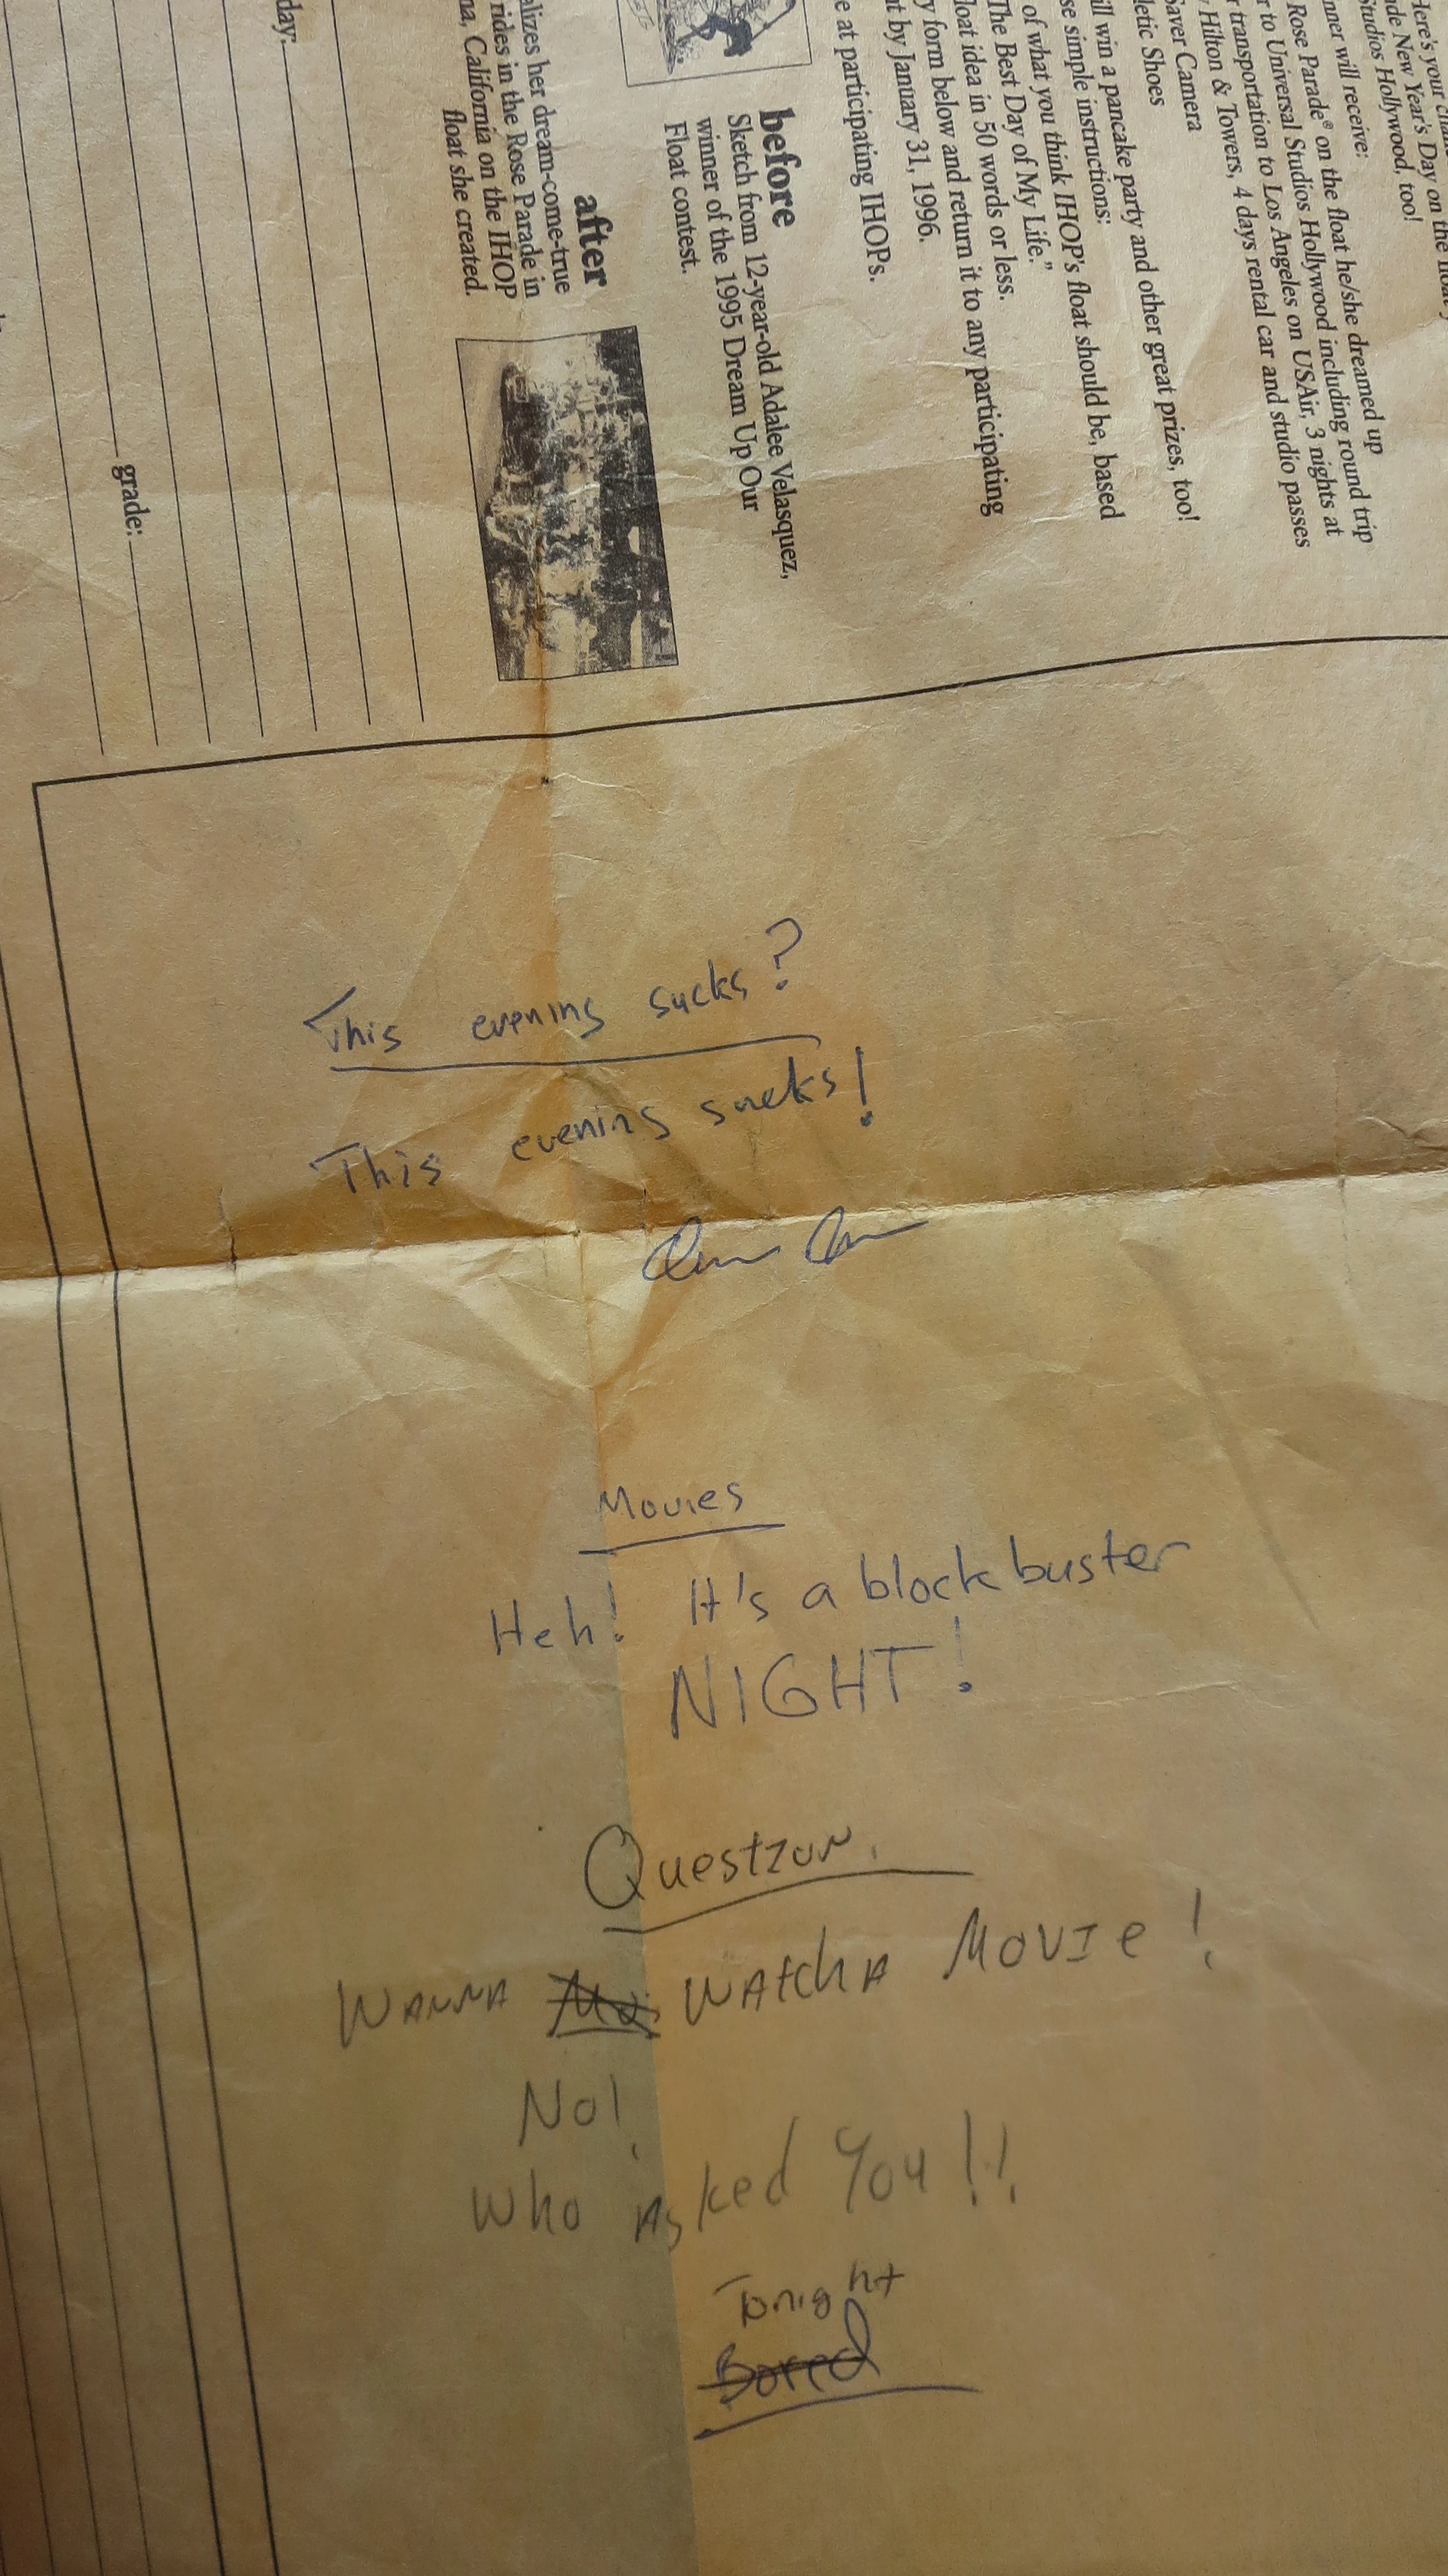 Here's your
de New Year's Day on the
Studios Hollywood, too!
nner will receive:
Rose Parade® on the float he/she dreamed up
r to Universal Studios Hollywood including round trip
r transportation to Los Angeles on USAir, 3 nights at
Hilton & Towers, 4 days rental car and studio passes
Saver Camera
letic Shoes
ill win a pancake party and other great prizes, too!
se simple instructions:
of what you think IHOP's float should be, based
The Best Day of My Life."
loat idea in 50 words or less.
y form below and return it to any participating
t by January 31, 1996.
e at participating IHOPs.
before
Sketch from 12-year-old Adalee Velasquez,
winner of the 1995 Dream Up Our
Float contest.
after
alizes her dream-come-true
rides in the Rose Parade in
na, California on the IHOP
float she created.
day:
grade:
This evening sucks?
This evening sucks!
Movies
Heh! It's a blockbuster
NIGHT!
Question.
WANNA WATCH A MOVIE!
No!
Who Asked You!!
Tonight
Bored